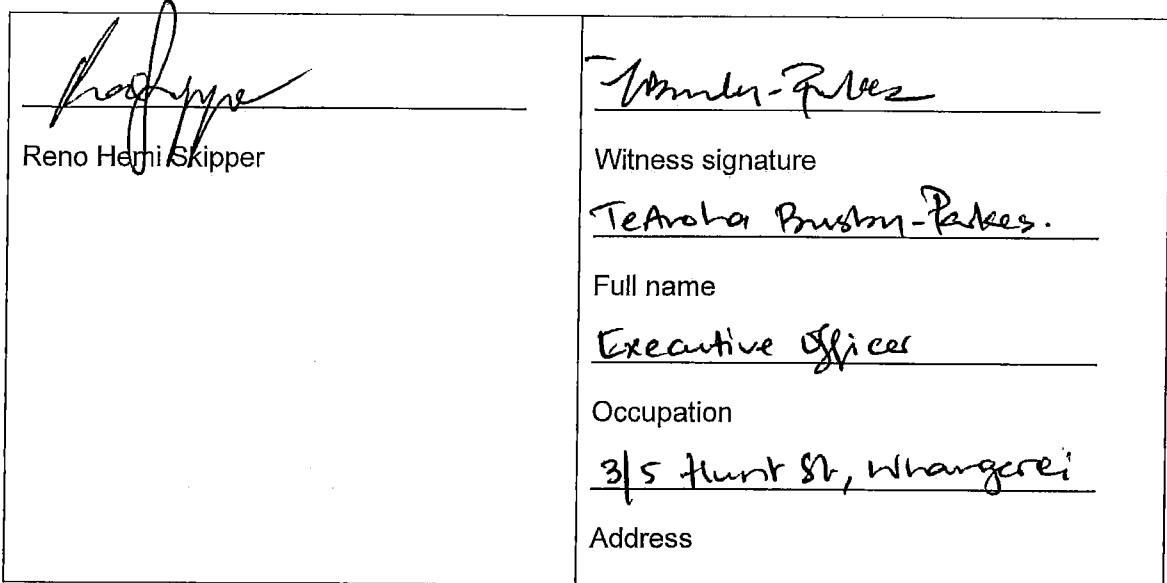 Reno Hemi Skipper
Witness signature
TeAroha Busby-Parkes.
Full name
Executive Officer
Occupation
3/5 Hunt St, Whangarei
Address